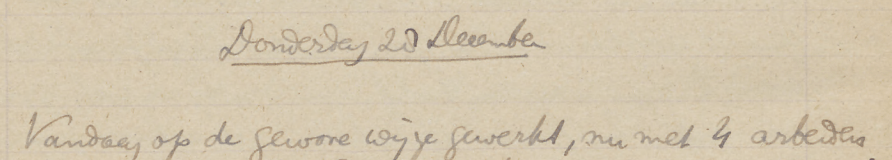 Donderdag 28 December
Vandaag op de gewone wijze gewerkt, nu met 4 arbeiders